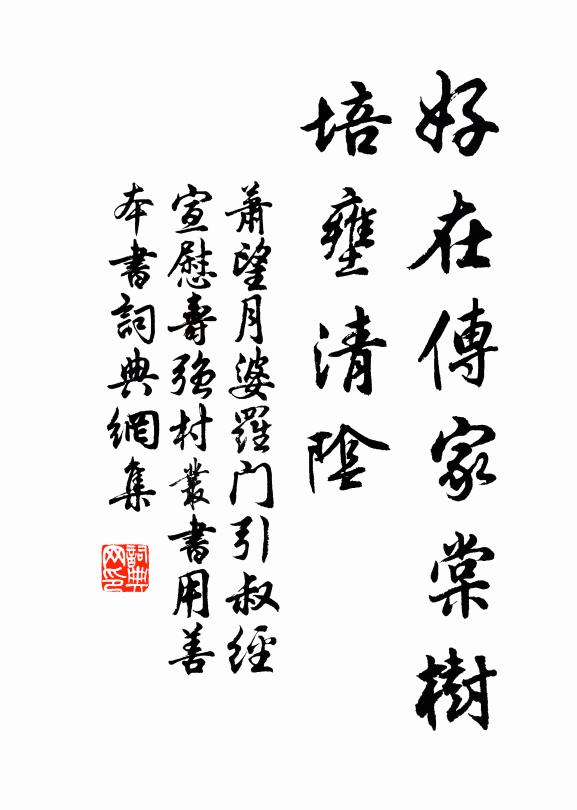 好在傳家棠樹
培壅清陰
蕭望月婆羅门引叔經
宣慰壽強村叢書用善
本書詞典網集
詞典网印